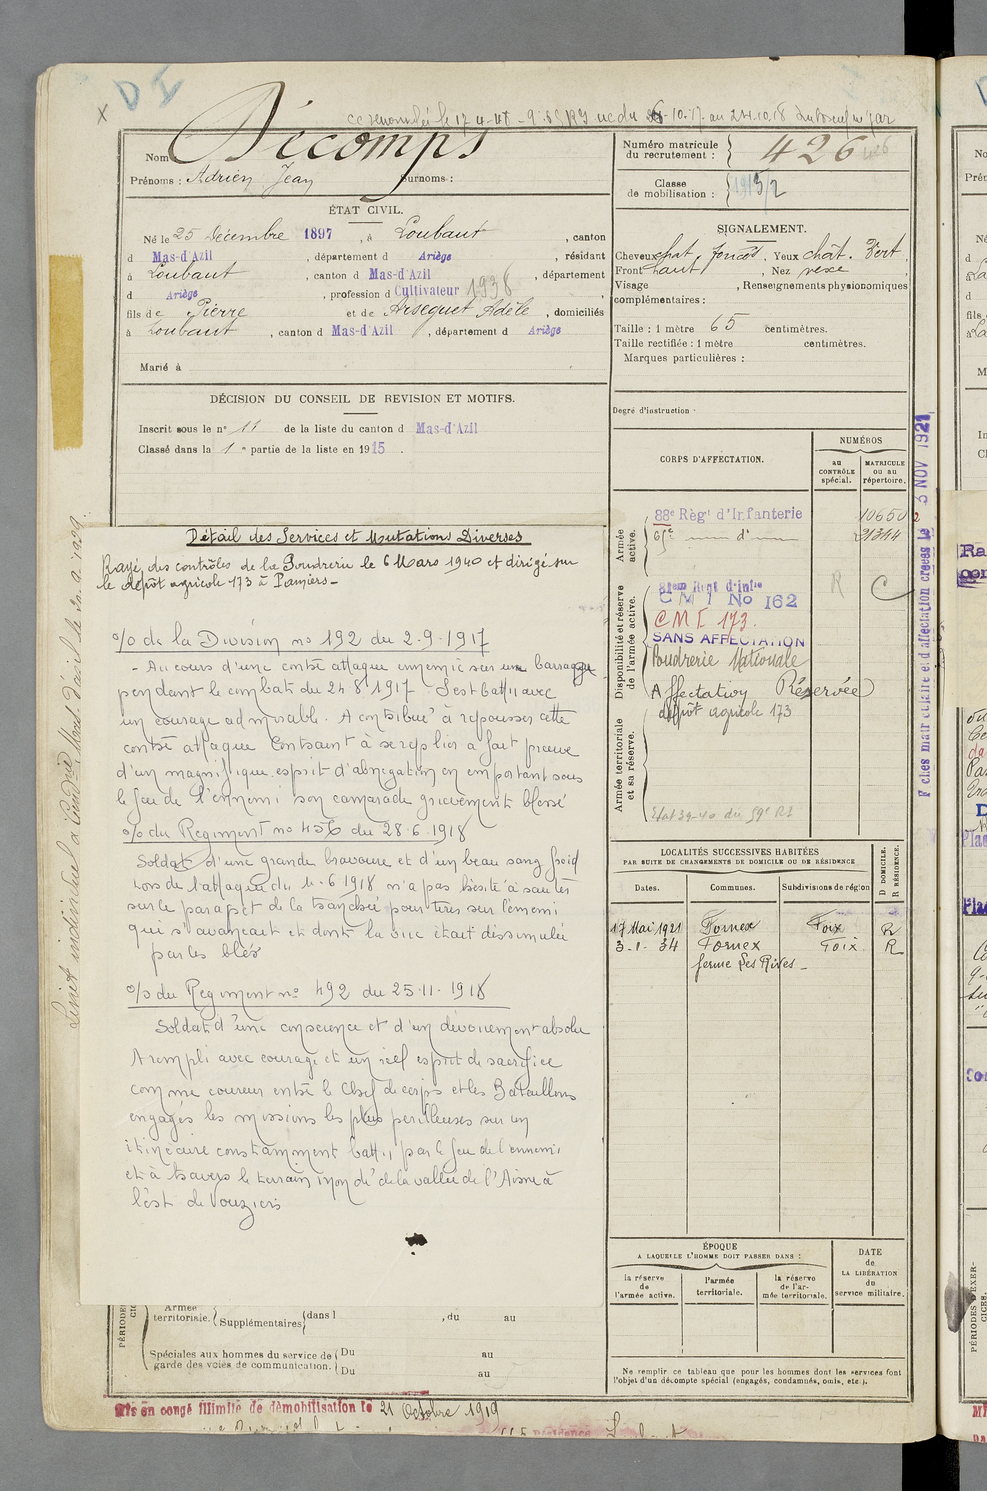 D I
Nom Décomps
Prénoms : Adrien Jean Surnoms :
Numéro matricule du recrutement : 426
Classe de mobilisation :
ÉTAT CIVIL.
Né le 25 Décembre 1897, à Loubaut, canton
d Mas-d'Azil, département d Ariège, résidant
à Loubaut, canton d Mas-d'Azil, département
d Ariège, profession d Cultivateur 1936
fils de Pierre et de Arseguet Adèle, domiciliés
à Loubaut, canton d Mas-d'Azil, département d Ariège
Marié à
SIGNALEMENT.
Cheveux chat. foncés, Yeux chât. Vert,
Front haut, Nez vexe
Visage , Renseignements physionomiques
complémentaires :
Taille : 1 mètre 65 centimètres.
Taille rectifiée : 1 mètre centimètres.
Marques particulières :
Degré d'instruction
DÉCISION DU CONSEIL DE REVISION ET MOTIFS.
Inscrit sous le n° 11 de la liste du canton d Mas-d'Azil
Classé dans la 1e partie de la liste en 1915.
Détail des Services et Mutations Diverses
Rayé des contrôles de la Poudrerie le 6 Mars 1940 et dirigé sur
le dépôt agricole 173 à Pamiers-
% de la Division no 192 du 2-9-1917
- Au cours d'une contre attaque ennemie sur un barrage
pendant le combat du 24 8 1917 S'est battu avec
un courage admirable. A contribué à repousser cette
contre attaque Contraint à se replier a fait preuve
d'un magnifique esprit d'abnégation en emportant sous
le feu de l'ennemi son camarade grièvement blessé
% du Regiment no 456 du 28-6-1918
Soldat d'une grande bravoure et d'un beau sang froid
Lors de l'attaque du 11-6 1918 n'a pas hésité à sauter
sur le parapet de la tranchée pour tirer sur l'ennemi
qui s'avançait et dont la vue était dissimulée
par les blés
% du Regiment no 492 du 25-11-1918
Soldat d'une conscience et d'un dévouement absolu
A rempli avec courage et un réel esprit de sacrifice
comme coureur entre le Chef de corps et les Bataillons
engagés les missions les plus perilleuses sur un
itinéraire constamment battu par le feu de l'ennemi
et à travers le terrain inondé de la vallée de l'Aisne à
l'est de Vouziers
CORPS D'AFFECTATION.
NUMÉROS
au CONTRÔLE spécial.
MATRICULE ou au répertoire.
Armée active.
88e Régt d'Infanterie 10650
d° 21344
Disponibilité et réserve de l'armée active.
C M I No 162
C M I 173.
SANS AFFECTATION
Poudrerie Nationale
Affectation Réservée
dépôt agricole 173
R C
Armée territoriale et sa réserve.
Fiches matriculaire et d'affectation créées le 3 NOV 1921
LOCALITÉS SUCCESSIVES HABITÉES
PAR SUITE DE CHANGEMENTS DE DOMICILE OU DE RÉSIDENCE.
D DOMICILE. R RÉSIDENCE.
Dates. Communes. Subdivisions de région
17 Mai 1921 Fornex Foix R
3-1-34 Fornex Foix R
ferme Les Rives -
ÉPOQUE
A LAQUELLE L'HOMME DOIT PASSER DANS :
la réserve de l'armée active.
l'armée territoriale.
la réserve de l'armée territoriale.
DATE de LA LIBÉRATION du service militaire.
Armée territoriale. Supplémentaires dans l , du au
Spéciales aux hommes du service de garde des voies de communication. Du au
Du au
Ne remplir ce tableau que pour les hommes dont les services font
l'objet d'un décompte spécial (engagés, condamnés, omis, etc.).
Mis en congé illimité de démobilisation le 21 Octobre 1919
PÉRIODES D'EXERCICES.